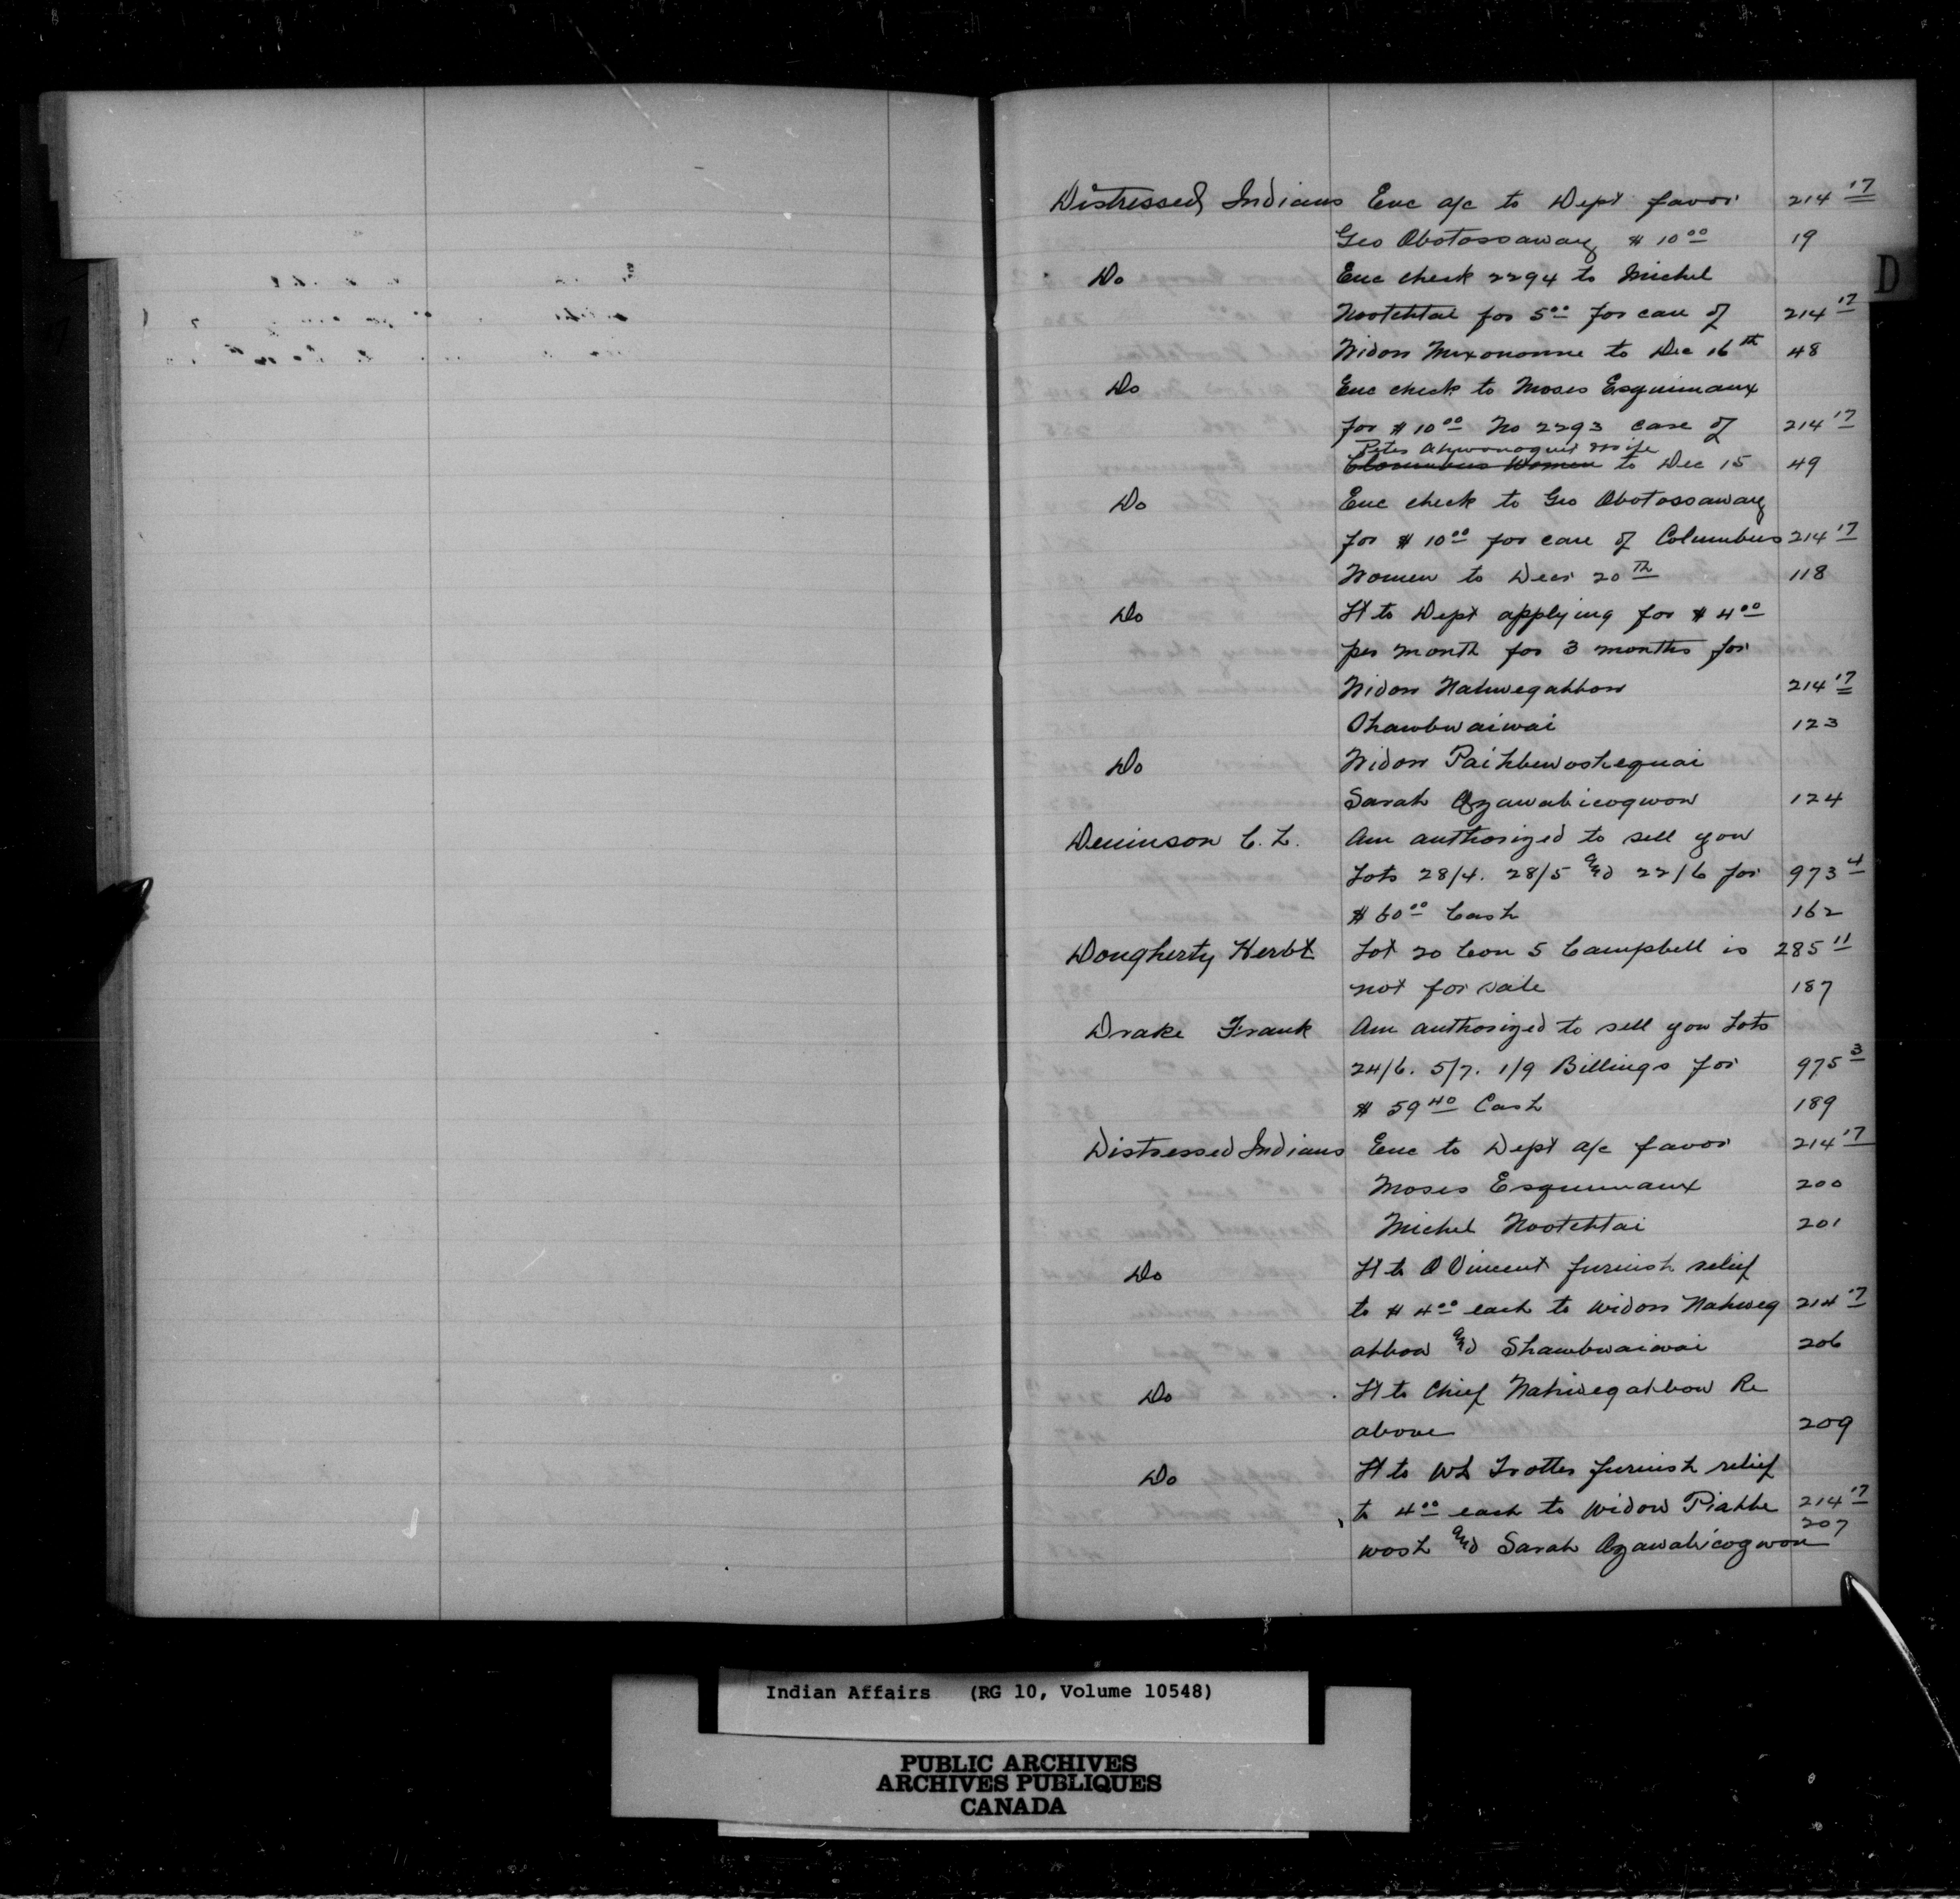 D
Distressed Indians Enc a/c to Dept favor 214 17
Geo Obotossaway $ 10 00 19
Do Enc check 2294 to Michel
Nootchtai for 5 00 for care of 214 17
Widow to Dec 16th 48
Do Enc check to Moses Esquimaux
for $ 10 00 No 2293 care of 214 17
Peter wife
Columbus Women to Dec 15 49
Do Enc check to Geo Obotossaway
for $ 10 00 for care of Columbus 214 17
Women to Decr 20th 118
Do Lt to Dept applying for $ 4 00
per month for 3 months for
Widow Nahwegahbow 214 17
Shawbwaiwai 123
Do Widow Paihbewoshequai
Sarah Ozawabicogwon 124
Deninson C. L. Am authorized to sell you
Lots 28/4. 28/5 and 22/6 for 973 4
$ 60 00 Cash 162
Dougherty Herbt Lot 20 Con 5 Campbell is 285 11
not for sale 187
Drake Frank Am authorized to sell you Lots
24/6. 5/7. 1/9 Billings for 975 3
$ 59 40 Cash 189
Distressed Indians Enc to Dept a/c favor 214 17
Moses Esquimaux 200
Michel Nootchtai 201
Do Lt to O Vincent furnish relief
to $ 4 00 each to widow Nahweg 214 17
ahbow and Shawbwaiwai 206
Do Lt to Chief Nahwegahbow Re
above 209
Do Lt to Wh Trotter furnish relief
to 4 00 each to Widow Piahbe 214 17
wosh and Sarah Ozawabicogwon 207
Indian Affairs (RG 10, Volume 10548)
PUBLIC ARCHIVES
ARCHIVES PUBLIQUES
CANADA